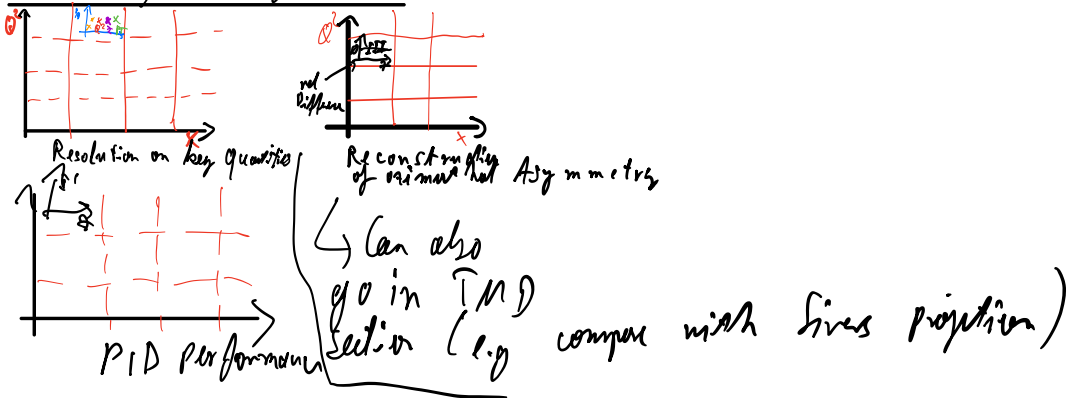 Q²
x
Resolution on key quantities
Q²
rel
Differen
x
Reconstruction
of azimuthal Asymmetry
PID Performance
↳ Can also
go in TMD
section (e.g compare with Sivers projection)